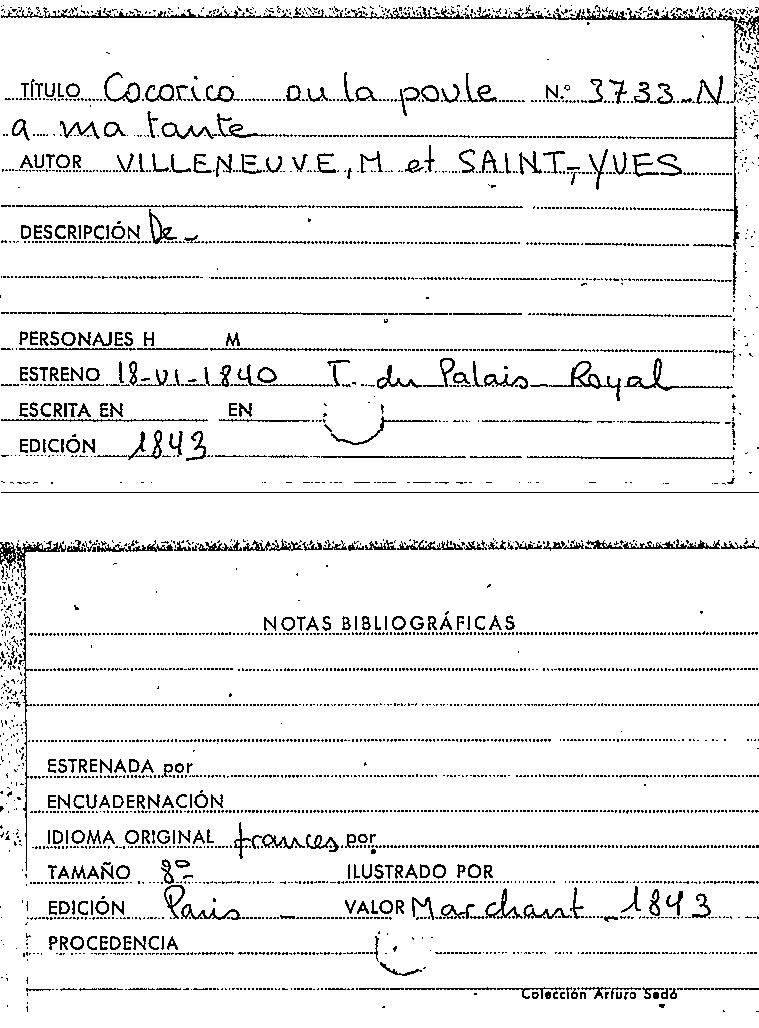 TÍTULO Cocorico ou la poule N.º 3733-N
a ma tante
AUTOR VILLENEUVE, M et SAINT-YVES
DESCRIPCIÓN De -
PERSONAJES H M
ESTRENO 18-VI-1840 T. du Palais Royal
ESCRITA EN EN
EDICIÓN 1843
NOTAS BIBLIOGRÁFICAS
ESTRENADA por
ENCUADERNACIÓN
IDIOMA ORIGINAL frances por
TAMAÑO 8º ILUSTRADO POR
EDICIÓN Paris - VALOR Marchant - 1843
PROCEDENCIA
Colección Arturo Sedó